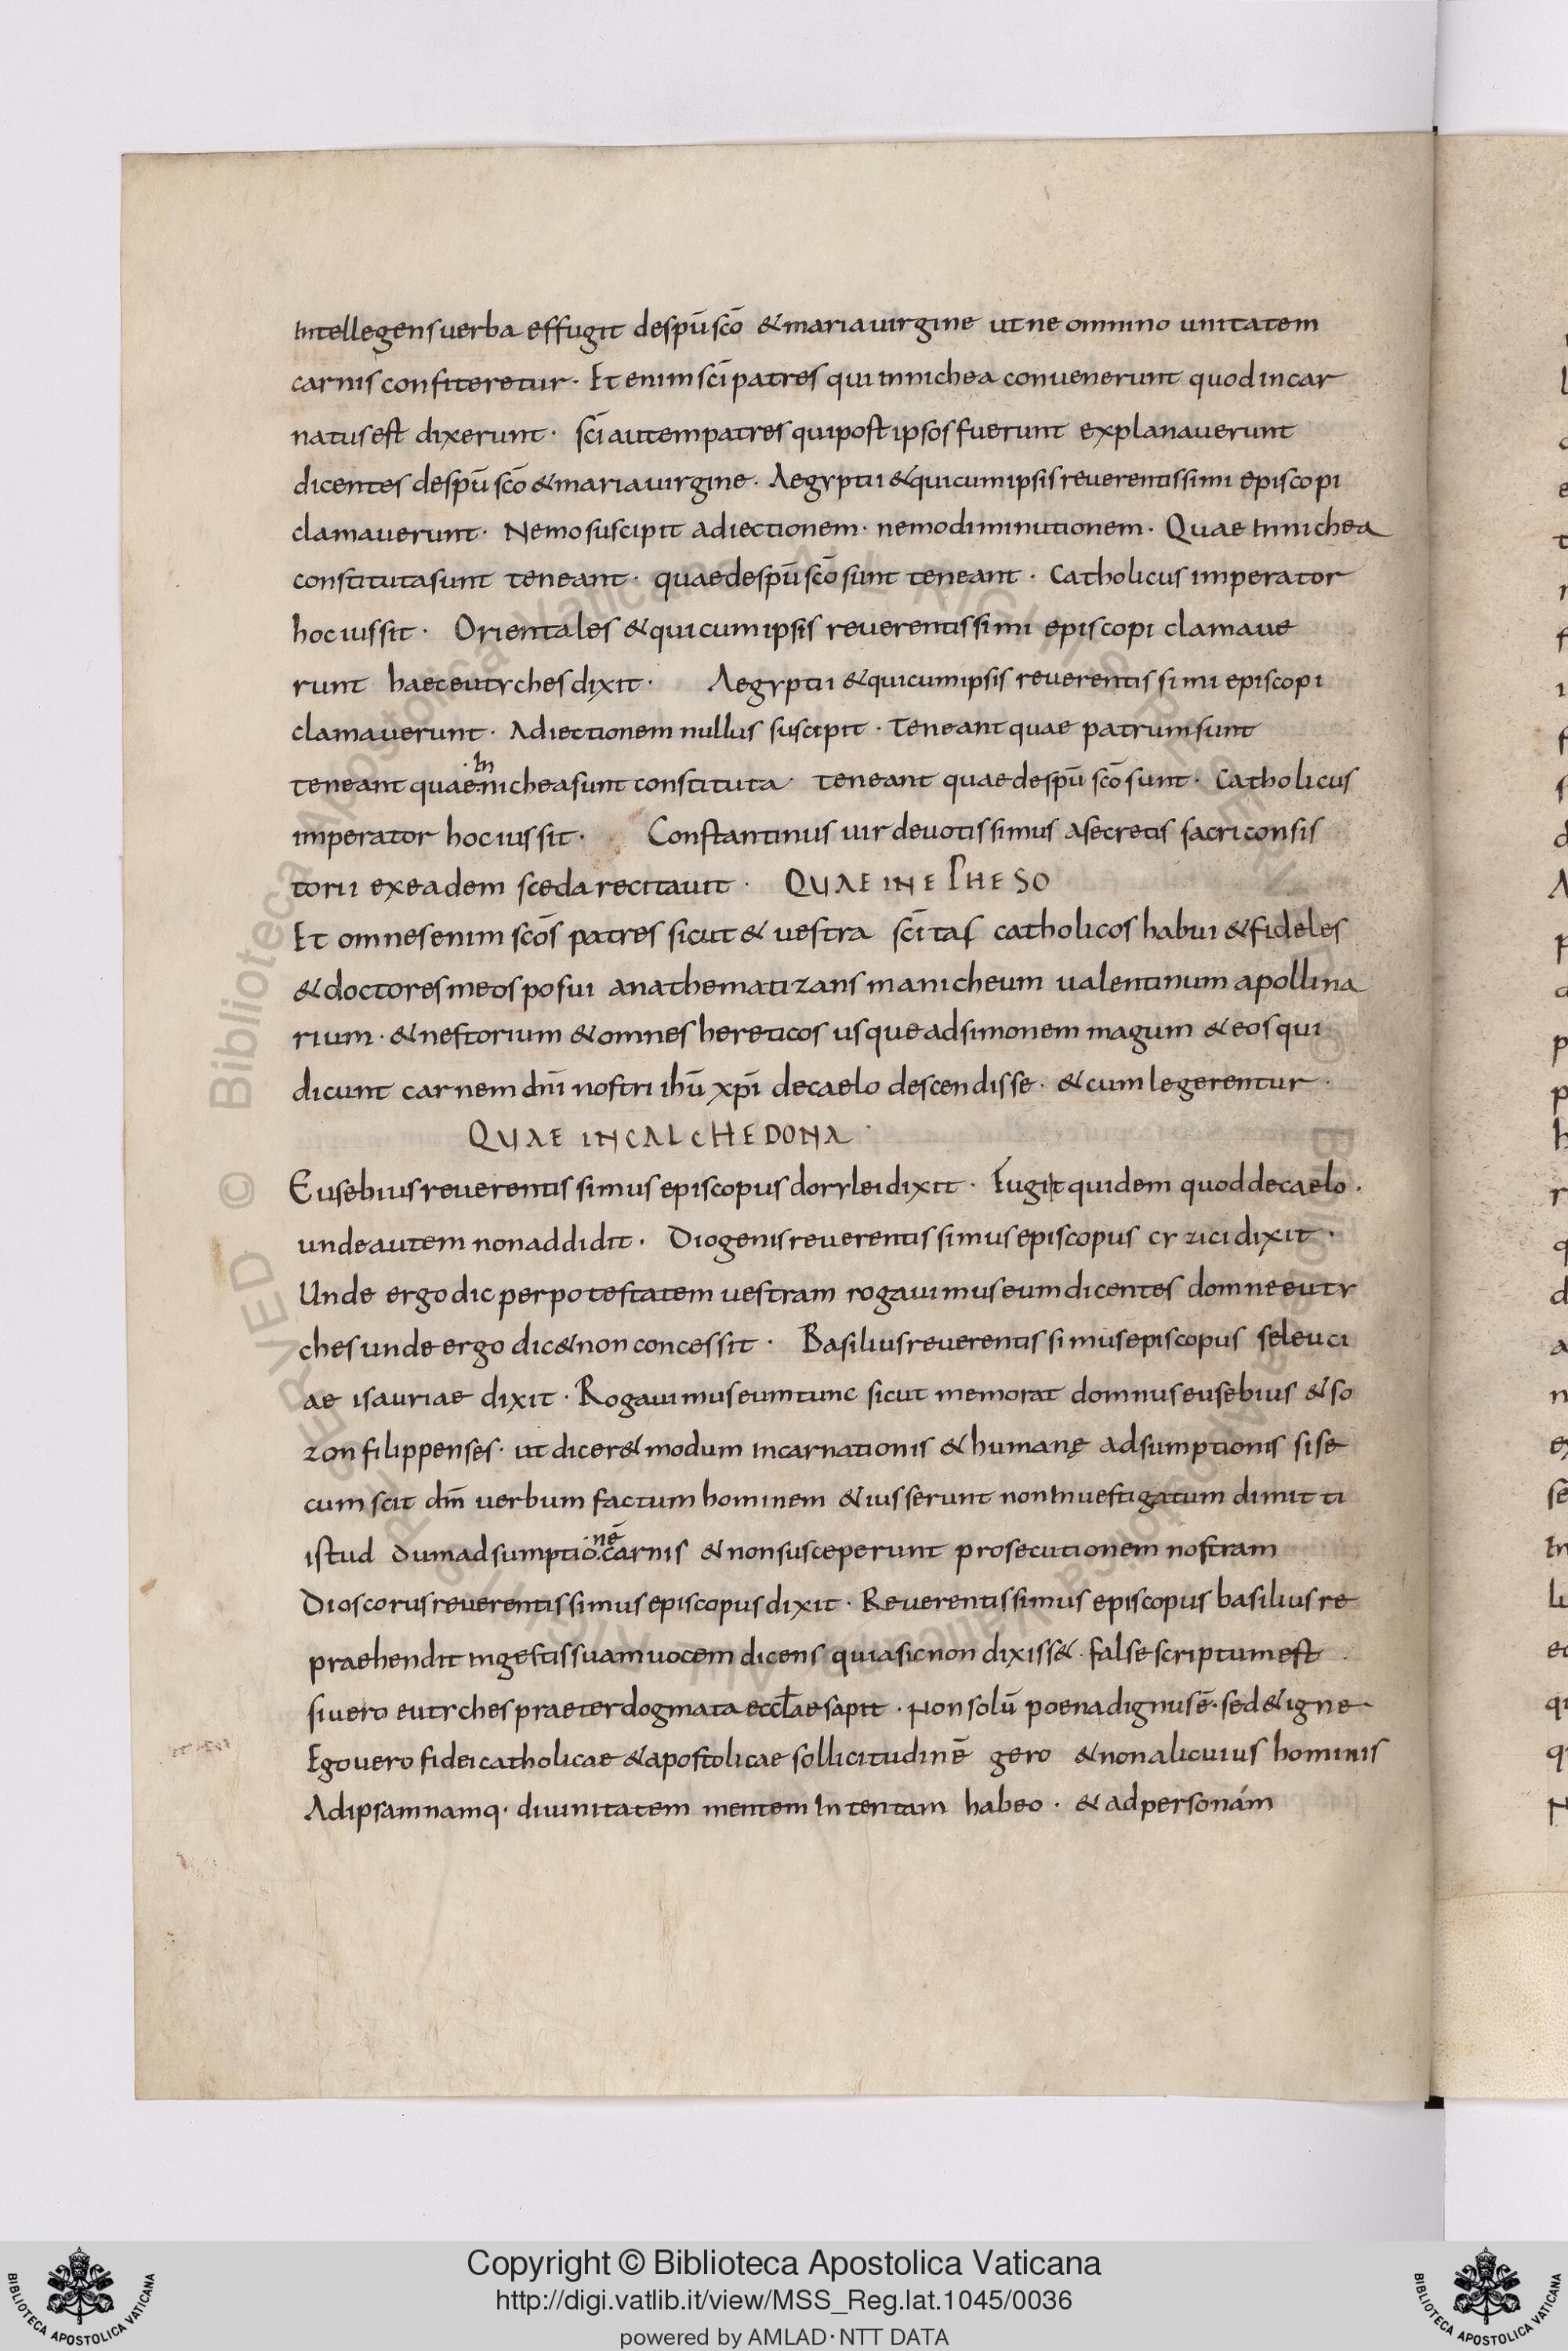 Intellegens uerba effugit de spū scō & maria uirgine ut ne omnino unitatem
carnis confiteretur · Et enim scī patres qui in nichea conuenerunt quod incar
natus est dixerunt · scī autem patres qui post ipsos fuerunt explanauerunt
dicentes de spū scō & maria uirgine · Aegyptii & qui cum ipsis reuerentissimi episcopi
clamauerunt · Nemo suscipit adiectionem · nemo diminutionem · Quae In nichea
constituta sunt teneant · quae de spū scō sunt teneant · Catholicus imperator
hoc iussit · Orientales & qui cum ipsis reuerentissimi episcopi clamaue
runt haec eutyches dixit · Aegyptii & qui cum ipsis reuerentissimi episcopi
clamauerunt · Adiectionem nullus suscipit · Teneant quae patrum sunt
teneant quae ·In nichea sunt constituta · teneant quae de spū scō sunt · Catholicus
imperator hoc iussit · Constantinus uir deuotissimus a secretis sacri consis
torii ex eadem sceda recitauit · QUAE IN EPHESO
Et omnes enim scōs patres sicut & uestra scītas catholicos habui & fideles
& doctores meos posui anathematizans manicheum ualentinum apollina
rium · & nestorium & omnes hereticos usque ad simonem magum & eos qui
dicunt carnem dnī nostri ihū xpī de caelo descendisse · & cum legerentur ·
QUAE IN CALCHEDONA ·
Eusebius reuerentissimus episcopus dorylei dixit · Fugit quidem quod de caelo ·
unde autem non addidit · Diogenis reuerentissimus episcopus cyzici dixit ·
Unde ergo dic per potestatem uestram rogauimus eum dicentes domne euty
ches unde ergo dic & non concessit · Basilius reuerentissimus episcopus seleuci
ae isauriae dixit · Rogauimus eum tunc sicut memorat domnus eusebius & so
zon filippenses · ut dicer& modum incarnationis & humanę adsumptionis si se
cum scit dm̄ uerbum factum hominem & iusserunt non Inuestigatum dimitti
istud dum adsumptio·nē carnis & non susceperunt prosecutionem nostram
Dioscorus reuerentissimus episcopus dixit · Reuerentissimus episcopus basilius re
praehendit in gestis suam uocem dicens quia sic non dixiss& · false scriptum est ·
si uero eutyches praeter dogmata eccłae sapit · Non solū poena dignus ē · sed & igne
Ego uero fidei catholicae & apostolicae sollicitudinē gero & non alicuius hominis
Ad ipsam namq· diuinitatem mentem Intentam habeo · & ad personám
Copyright © Biblioteca Apostolica Vaticana
http://digi.vatlib.it/view/MSS_Reg.lat.1045/0036
powered by AMLAD·NTT DATA
BIBLIOTECA APOSTOLICA VATICANA
BIBLIOTECA APOSTOLICA VATICANA